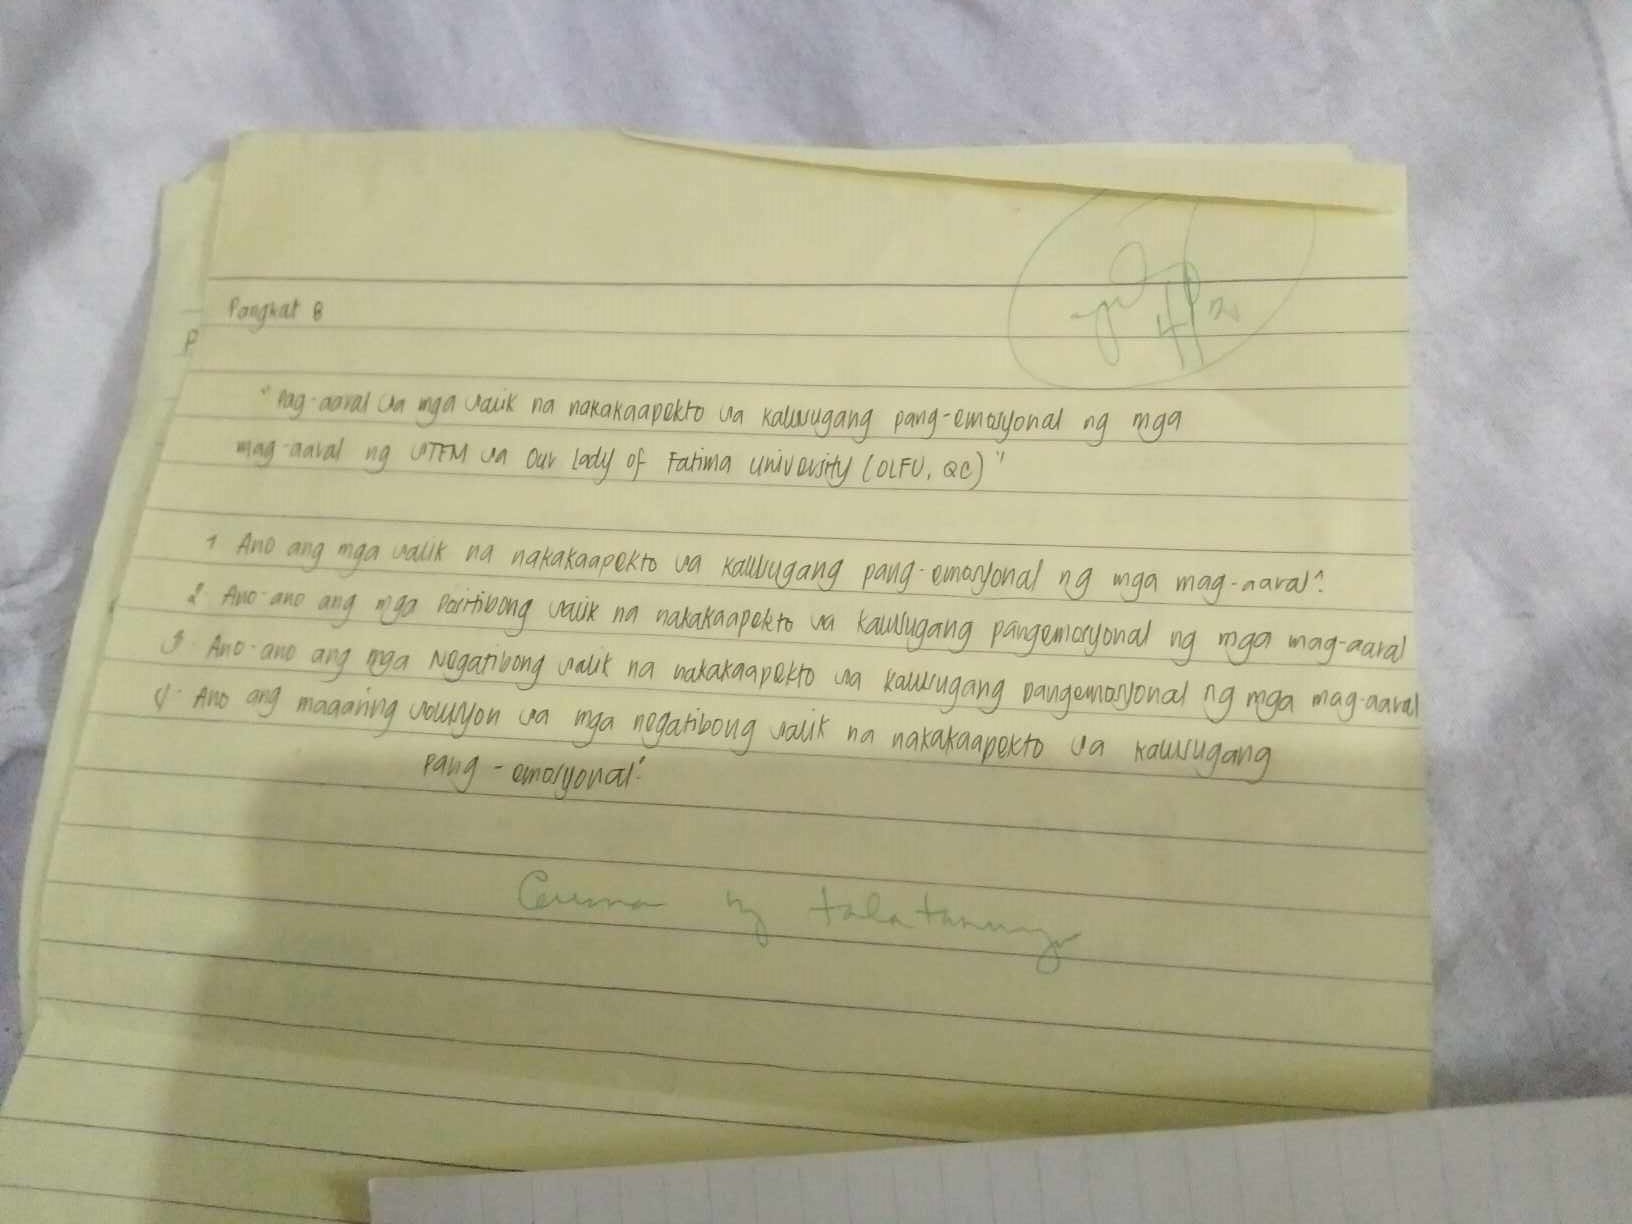 Pangkat 8
P
"Pag-aaral sa mga salik na nakakaapekto sa kalusugang pang-emosyonal ng mga
mag-aaral ng STEM sa Our Lady of Fatima University (OLFU, QC)"
1 Ano ang mga salik na nakakaapekto sa kalusugang pang-emosyonal ng mga mag-aaral?
2. Ano-ano ang mga Positibong salik na nakakaapekto sa kalusugang pangemosyonal ng mga mag-aaral
3. Ano-ano ang mga Negatibong salik na nakakaapekto sa kalusugang pangemosyonal ng mga mag-aaral
4. Ano ang maganing solusyon sa mga negatibong salik na nakakaapekto sa kalusugang
pang-emosyonal?
ng talatanungan